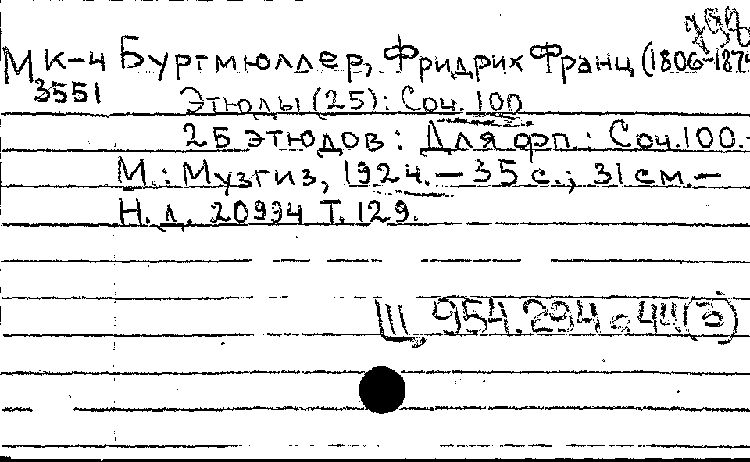 МК-4 Бургмюллер, Фридрих Франц (1806-1874
3551
Этюды (25): Соч. 100
25 этюдов: Для фп.: Соч. 100.-
М.: Музгиз, 1924. – 35 с.; 31 см. –
Н. д. 20994 Т. 129.
Щ 954.294.44(3)